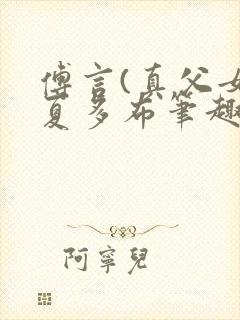 傅言(真父女
夏多布笔趣
阿寧兒